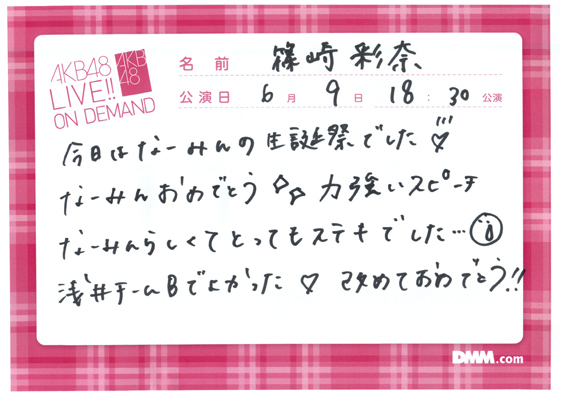 AKB48
LIVE!!
ON DEMAND
AKB
48
名前 篠崎彩奈
公演日 6月9日 18:30公演
今日はなーみんの生誕祭でした♡
なーみんおめでとう 力強いスピーチ
なーみんらしくてとってもステキでした…
浅井チームBでよかった♡ 改めておめでとう!!
DMM.com